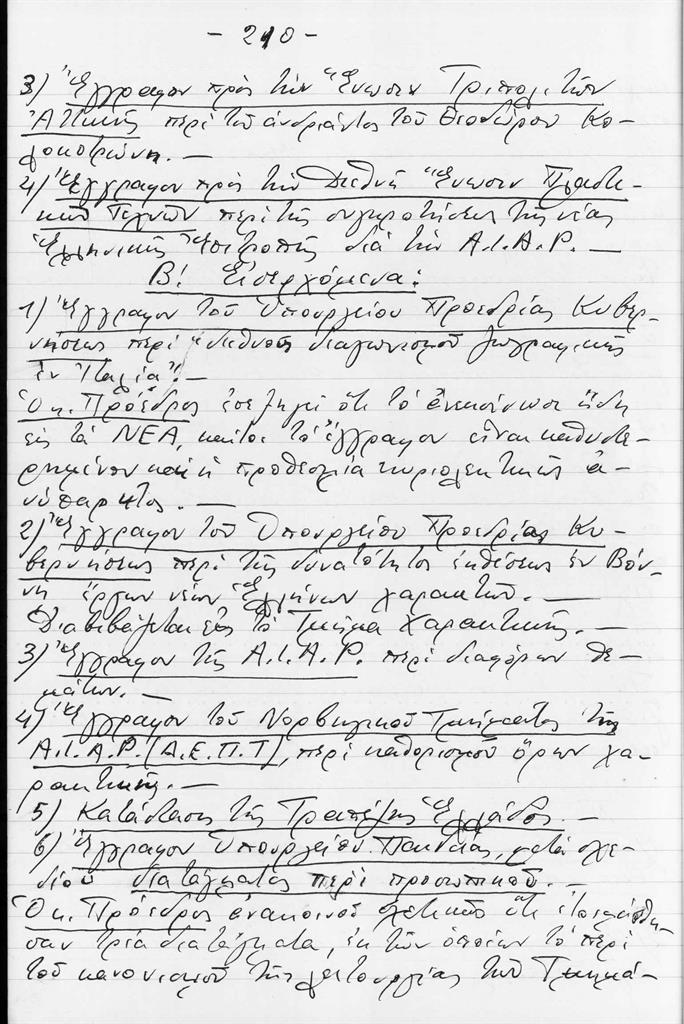 - 210 -
3) Ἔγγραφον πρὸς τὴν Ἕνωσιν Τριπολιτῶν
Ἀττικῆς περὶ τοῦ ἀνδριάντος τοῦ Θεοδώρου Κο-
λοκοτρώνη. —
4) Ἔγγραφον πρὸς τὴν Διεθνῆ Ἕνωσιν Πλαστι-
κῶν Τεχνῶν περὶ τῆς συγκροτήσεως τῆς νέας
Ἑλληνικῆς Ἐπιτροπῆς διὰ τὴν A.I.A.P. —
Β! Εἰσερχόμενα:
1) Ἔγγραφον τοῦ Ὑπουργείου Προεδρίας Κυβερ-
νήσεως περὶ "διεθνοῦς διαγωνισμοῦ ζωγραφικῆς
ἐν Ἰταλίᾳ". —
Ὁ κ. Πρόεδρος ἐπεξηγεῖ ὅτι τὸ ἀνεκοίνωσε ἤδη
εἰς τὰ ΝΕΑ, καίτοι τὸ ἔγγραφον εἶναι καθυστε-
ρημένον καὶ ἡ προθεσμία κυριολεκτικῶς ἀ-
νύπαρκτος. —
2) Ἔγγραφον τοῦ Ὑπουργείου Προεδρίας Κυ-
βερνήσεως περὶ τῆς δυνατότητος ἐκθέσεως ἐν Βόν-
νῃ ἔργων νέων Ἑλλήνων χαρακτῶν. —
Διαβιβάζεται εἰς τὸ Τμῆμα Χαρακτικῆς. —
3) Ἔγγραφον τῆς A.I.A.P. περὶ διαφόρων θε-
μάτων. —
4) Ἔγγραφον τοῦ Νορβηγικοῦ Τμήματος τῆς
A.I.A.P. (Δ.Ε.Π.Τ), περὶ καθορισμοῦ ὅρων χα-
ρακτικῆς. —
5) Κατάστασις τῆς Τραπέζης Ἑλλάδος. —
6) Ἔγγραφον Ὑπουργείου Παιδείας, μετὰ σχε-
δίου διατάγματος περὶ προσωπικοῦ. —
Ὁ κ. Πρόεδρος ἀνακοινοῖ σχετικῶς ὅτι ἐτοιμάσθη-
σαν τρία διατάγματα, ἐκ τῶν ὁποίων τὸ περὶ
τοῦ κανονισμοῦ τῆς λειτουργίας τῶν Τμημά-